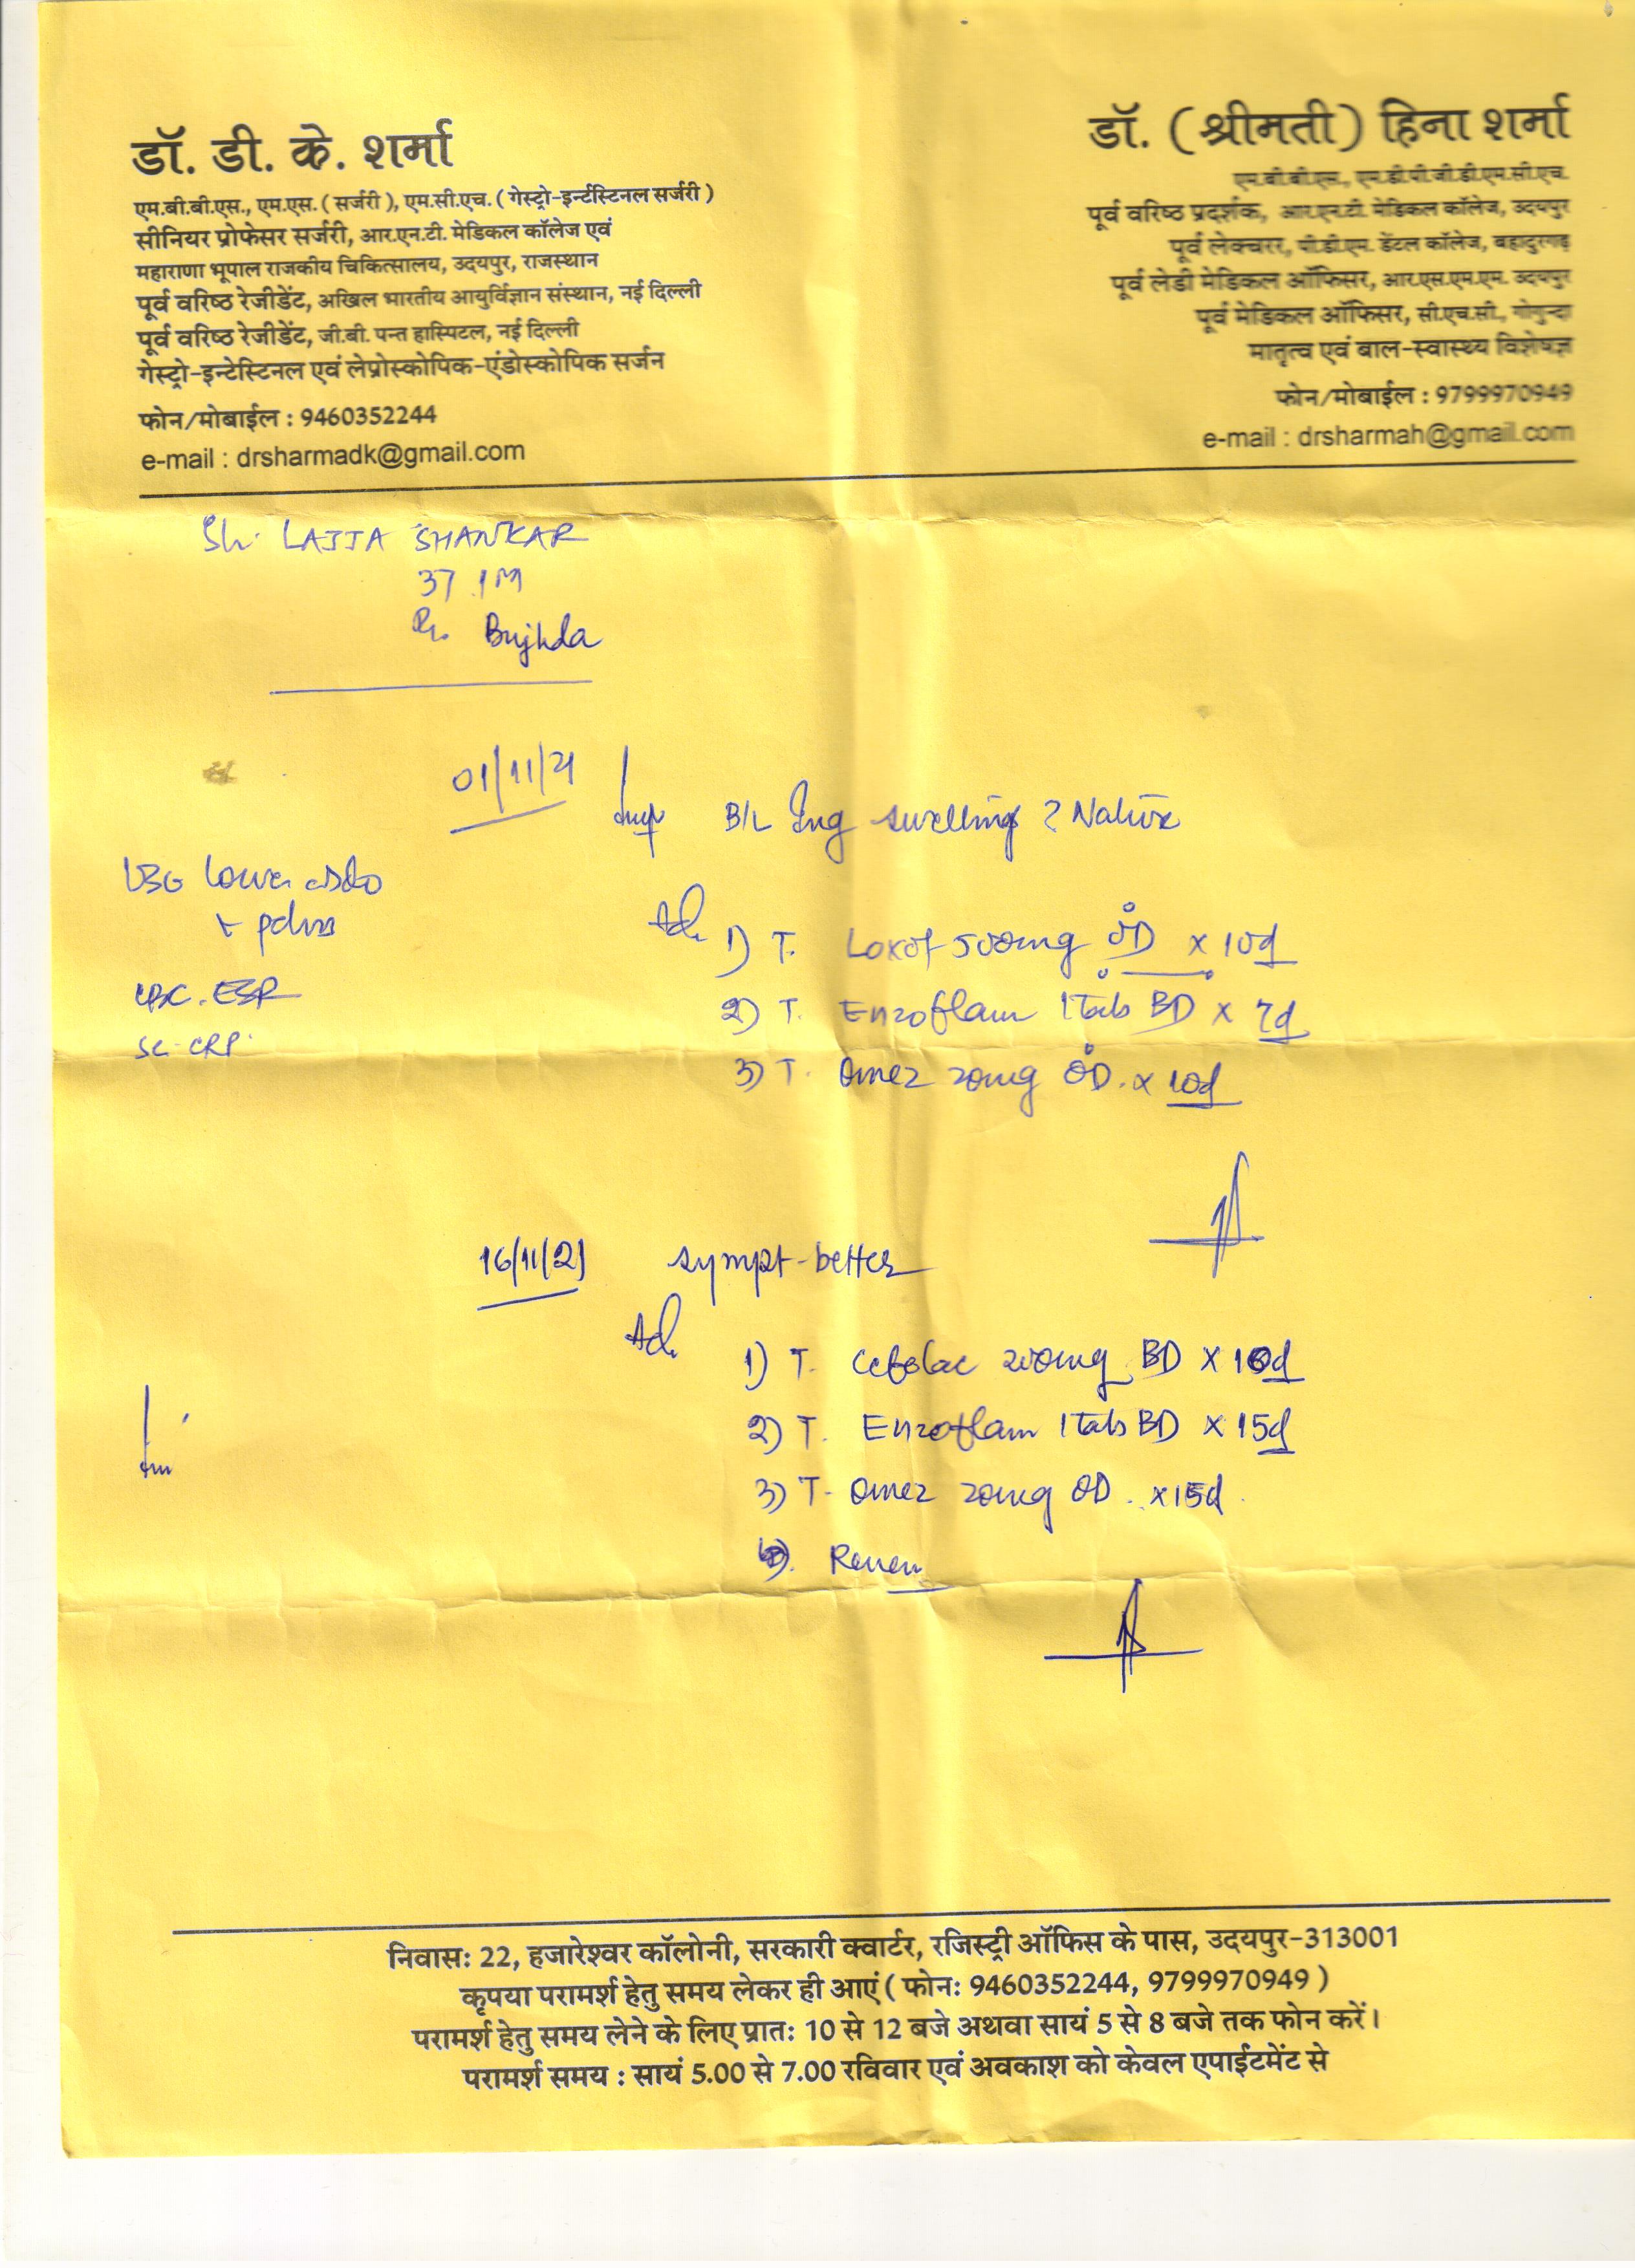 डॉ. डी. के. शर्मा
एम.बी.बी.एस., एम.एस. ( सर्जरी ), एम.सी.एच. ( गेस्ट्रो-इन्टेस्टिनल सर्जरी )
सीनियर प्रोफेसर सर्जरी, आर.एन.टी. मेडिकल कॉलेज एवं
महाराणा भूपाल राजकीय चिकित्सालय, उदयपुर, राजस्थान
पूर्व वरिष्ठ रेजीडेंट, अखिल भारतीय आयुर्विज्ञान संस्थान, नई दिल्ली
पूर्व वरिष्ठ रेजीडेंट, जी.बी. पन्त हास्पिटल, नई दिल्ली
गेस्ट्रो-इन्टेस्टिनल एवं लेप्रोस्कोपिक-एंडोस्कोपिक सर्जन
फोन/मोबाईल : 9460352244
e-mail : drsharmadk@gmail.com
डॉ. ( श्रीमती ) हिना शर्मा
एम.बी.बी.एस., एम.डी.पी.जी.डी.एम.सी.एच.
पूर्व वरिष्ठ प्रदर्शक, आर.एन.टी. मेडिकल कॉलेज, उदयपुर
पूर्व लेक्चरर, पी.डी.एम. डेंटल कॉलेज, बहादुरगढ़
पूर्व लेडी मेडिकल ऑफिसर, आर.एस.एम.एम. उदयपुर
पूर्व मेडिकल ऑफिसर, सी.एच.सी., गोगुन्दा
मातृत्व एवं बाल-स्वास्थ्य विशेषज्ञ
फोन/मोबाईल : 9799970949
e-mail : drsharmah@gmail.com
Sh. LAJJA SHANKAR
37 / M
R. Bujhda
01/11/21
B/L Ing swelling ? Nature
USG Lower abdo
+ pelvis
CBC. ESR
Sr. CRP
Ad.
1) T. Loxof 500mg OD x 10d
2) T. Enzoflam 1 tab BD x 7d
3) T. Omez 20mg OD. x 10d
16/11/21 sympt-better
Ad.
1) T. Cefolac 200mg BD x 10d
2) T. Enzoflam 1 tab BD x 15d
3) T. Omez 20mg OD. x 15d
Review
निवास: 22, हजारेश्वर कॉलोनी, सरकारी क्वार्टर, रजिस्ट्री ऑफिस के पास, उदयपुर-313001
कृपया परामर्श हेतु समय लेकर ही आएं ( फोन: 9460352244, 9799970949 )
परामर्श हेतु समय लेने के लिए प्रात: 10 से 12 बजे अथवा सायं 5 से 8 बजे तक फोन करें।
परामर्श समय : सायं 5.00 से 7.00 रविवार एवं अवकाश को केवल एपाईटमेंट से